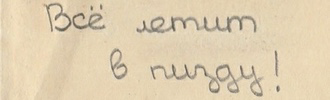 Всё летит
в пизду!